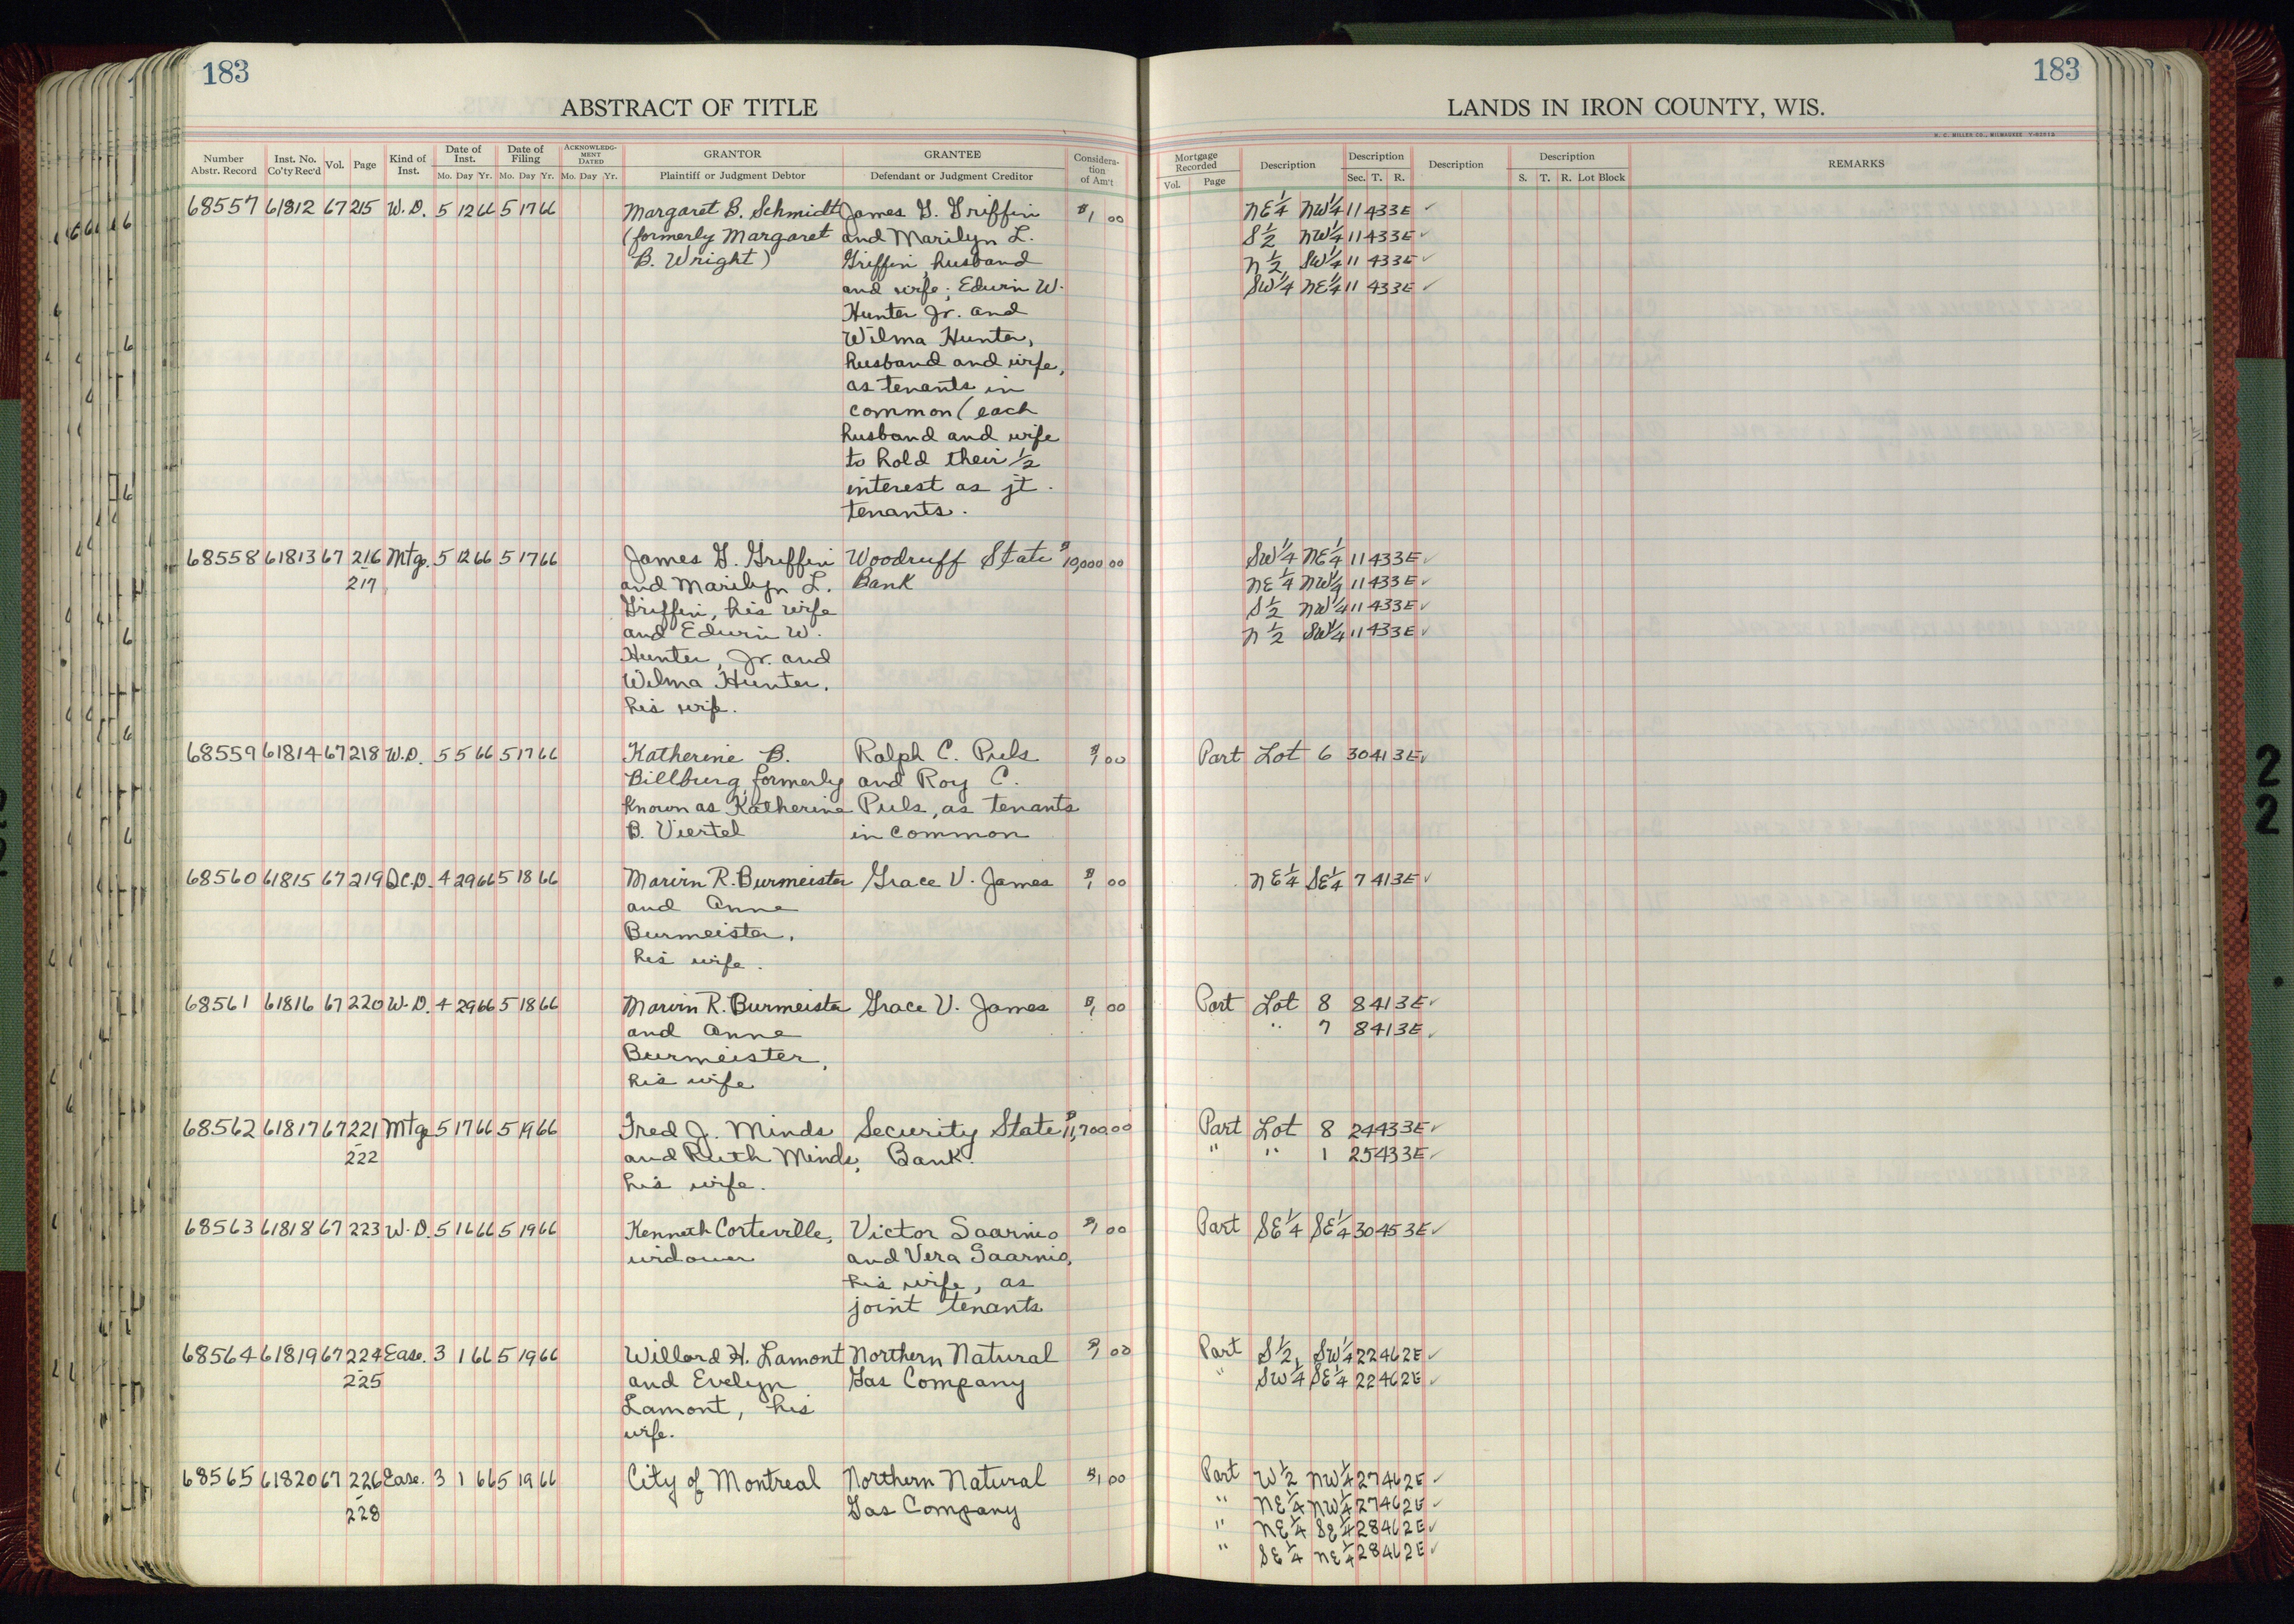 183
ABSTRACT OF TITLE
Number Abstr. Record Inst. No. Co'ty Rec'd Vol. Page Kind of Inst. Date of Inst. Mo. Day Yr. Date of Filing Mo. Day Yr. ACKNOWLEDGMENT DATED Mo. Day Yr. GRANTOR Plaintiff or Judgment Debtor GRANTEE Defendant or Judgment Creditor Consideration of Am't
68557 61812 67 215 W.D. 5 12 66 5 17 66 Margaret B. Schmidt James G. Griffin $1 00
(formerly Margaret and Marilyn L.
B. Wright) Griffin, husband
and wife; Edwin W.
Hunter Jr. and
Wilma Hunter,
husband and wife,
as tenants in
common (each
husband and wife
to hold their 1/2
interest as jt.
tenants.
68558 61813 67 216 Mtg. 5 12 66 5 17 66 James G. Griffin Woodruff State $10,000 00
- 217 and Marilyn L. Bank
Griffin, his wife
and Edwin W.
Hunter, Jr. and
Wilma Hunter,
his wife.
68559 61814 67 218 W.D. 5 5 66 5 17 66 Katherine B. Ralph C. Puls $1 00
Billburg, formerly and Roy C.
known as Katherine Puls, as tenants
B. Viertel in common
68560 61815 67 219 Q.C.D. 4 29 66 5 18 66 Marvin R. Burmeister Grace V. James $1 00
and Anne
Burmeister,
his wife.
68561 61816 67 220 W.D. 4 29 66 5 18 66 Marvin R. Burmeister Grace V. James $1 00
and Anne
Burmeister,
his wife
68562 61817 67 221 Mtg 5 17 66 5 19 66 Fred J. Minds Security State $11,700 00
- 222 and Ruth Minds, Bank.
his wife.
68563 61818 67 223 W.D. 5 16 66 5 19 66 Kenneth Corteville, Victor Saarnio $1 00
widower and Vera Saarnio,
his wife, as
joint tenants
68564 61819 67 224 Ease. 3 1 66 5 19 66 Willard H. Lamont Northern Natural $1 00
- 225 and Evelyn Gas Company
Lamont, his
wife.
68565 61820 67 226 Ease. 3 1 66 5 19 66 City of Montreal Northern Natural $1 00
- 228 Gas Company
183
LANDS IN IRON COUNTY, WIS.
H. C. MILLER CO., MILWAUKEE
Mortgage Recorded Vol. Page Description Description Sec. T. R. Description Description S. T. R. Lot Block REMARKS
NE 1/4 NW 1/4 11 43 3E ✓
S 1/2 NW 1/4 11 43 3E ✓
N 1/2 SW 1/4 11 43 3E ✓
SW 1/4 NE 1/4 11 43 3E ✓
SW 1/4 NE 1/4 11 43 3E ✓
NE 1/4 NW 1/4 11 43 3E ✓
S 1/2 NW 1/4 11 43 3E ✓
N 1/2 SW 1/4 11 43 3E ✓
Part Lot 6 30 41 3E ✓
NE 1/4 SE 1/4 7 41 3E ✓
Part Lot 8 8 41 3E ✓
" 7 8 41 3E ✓
Part Lot 8 24 43 3E ✓
" " 1 25 43 3E ✓
Part SE 1/4 SE 1/4 30 45 3E ✓
Part S 1/2, SW 1/4 22 46 2E ✓
" SW 1/4 SE 1/4 22 46 2E ✓
Part W 1/2 NW 1/4 27 46 2E ✓
" NE 1/4 NW 1/4 27 46 2E ✓
" NE 1/4 SE 1/4 28 46 2E ✓
" SE 1/4 NE 1/4 28 46 2E ✓